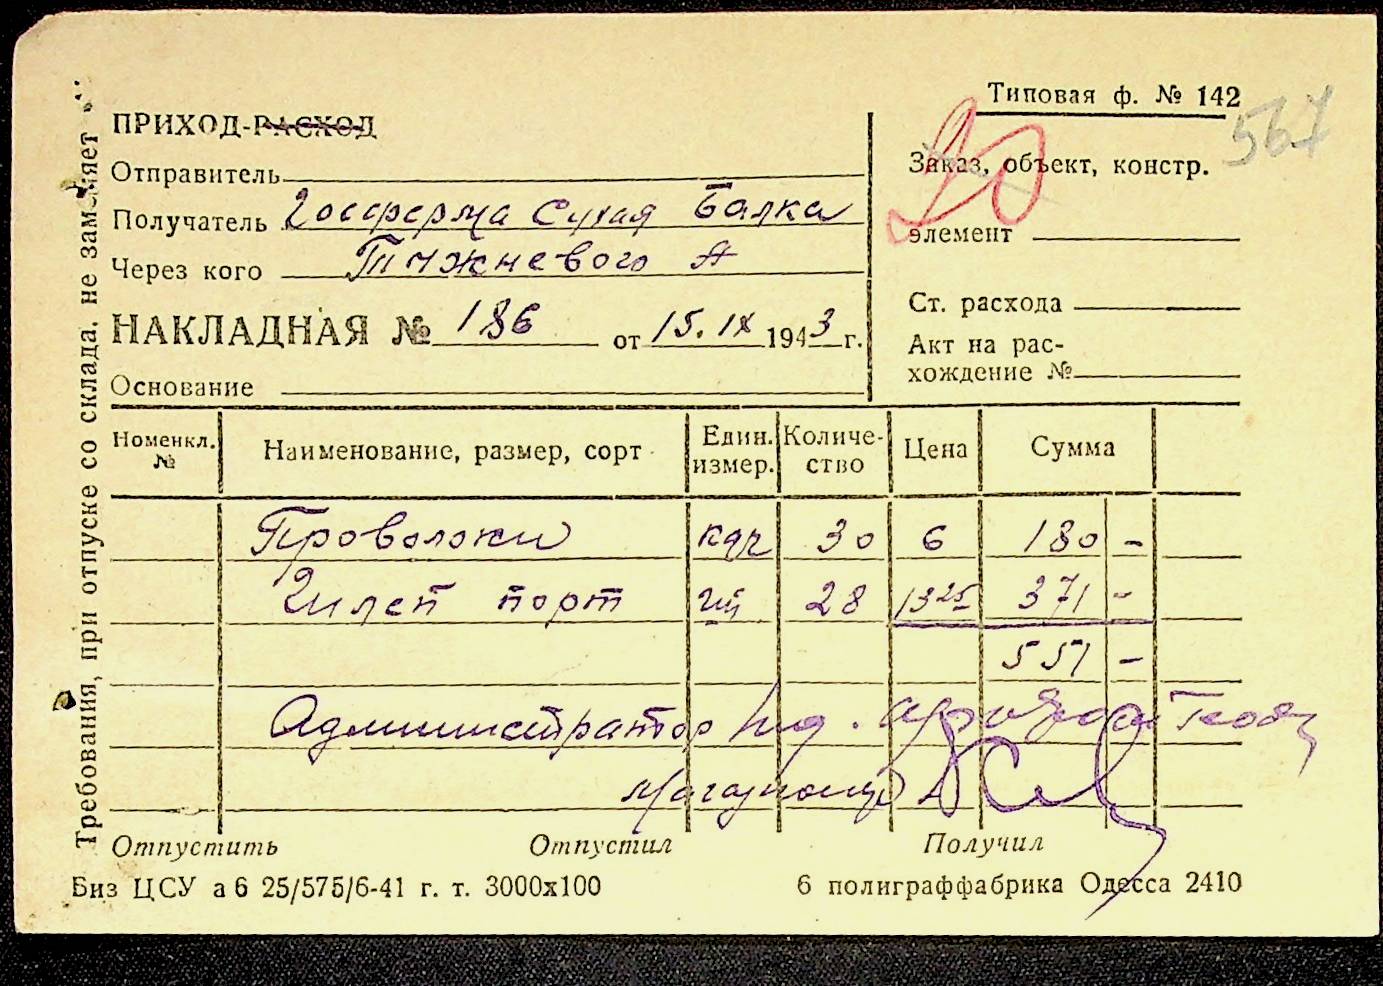 Типовая ф. № 142
567
ПРИХОД-РАСХОД
20
Заказ, объект, констр.
элемент
Отправитель
Получатель Госферма Сухая Балка
Через кого Тижневого А
НАКЛАДНАЯ № 186 от 15.IX 1943 г.
Основание
Ст. расхода
Акт на рас-
хождение №
Номенкл. № Наименование, размер, сорт Един. измер. Количе-ство Цена Сумма
Проволоки 30 6 180 -
28 13 25 371 -
551 -
Администратор
Отпустить Отпустил Получил
Биз ЦСУ а 6 25/575/6-41 г. т. 3000х100 6 полиграффабрика Одесса 2410
Требования, при отпуске со склада, не заменяет